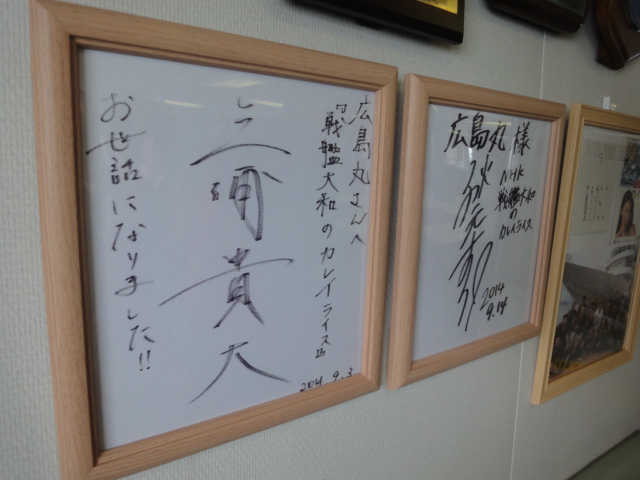 広島丸さんへ
「戦艦大和のカレイライス」
三浦貴大
お世話になりました!!
2014.9.3
広島丸様
NHK
戦艦大和
の
カレイライス
2014
9.14